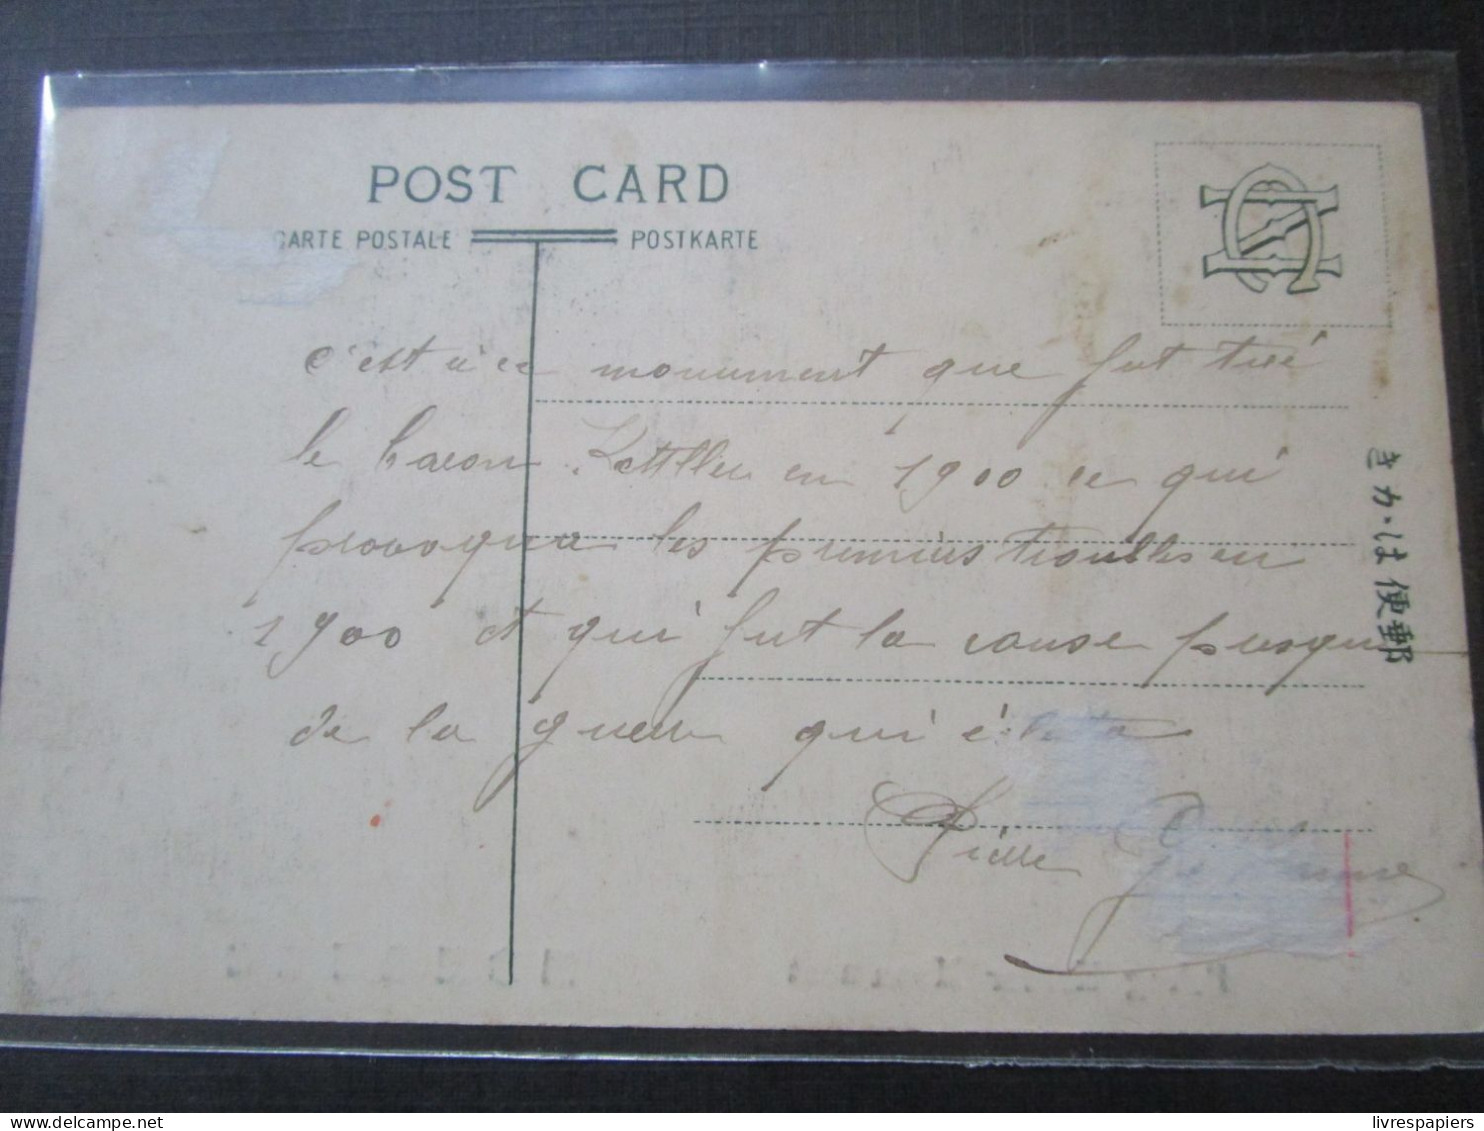 POST CARD
CARTE POSTALE POSTKARTE
c'est à ce monument que fut tué
le baron Kettller en 1900 ce qui
provoqua les premiers troubles en
1900 et qui fut la cause presque
de la guerre qui éclata
Pierre
きカ・は便郵
livrespapiers